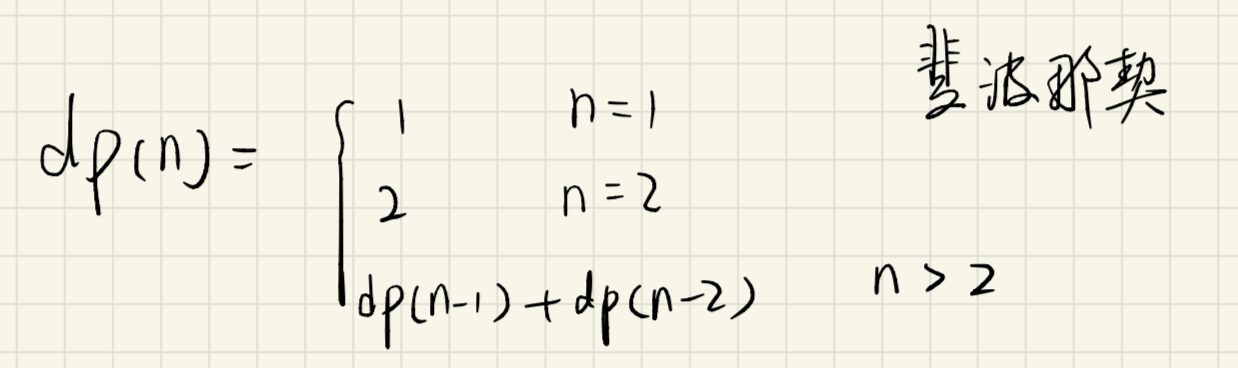 斐波那契
dp(n) = { 1 n=1
2 n=2
dp(n-1) + dp(n-2) n > 2